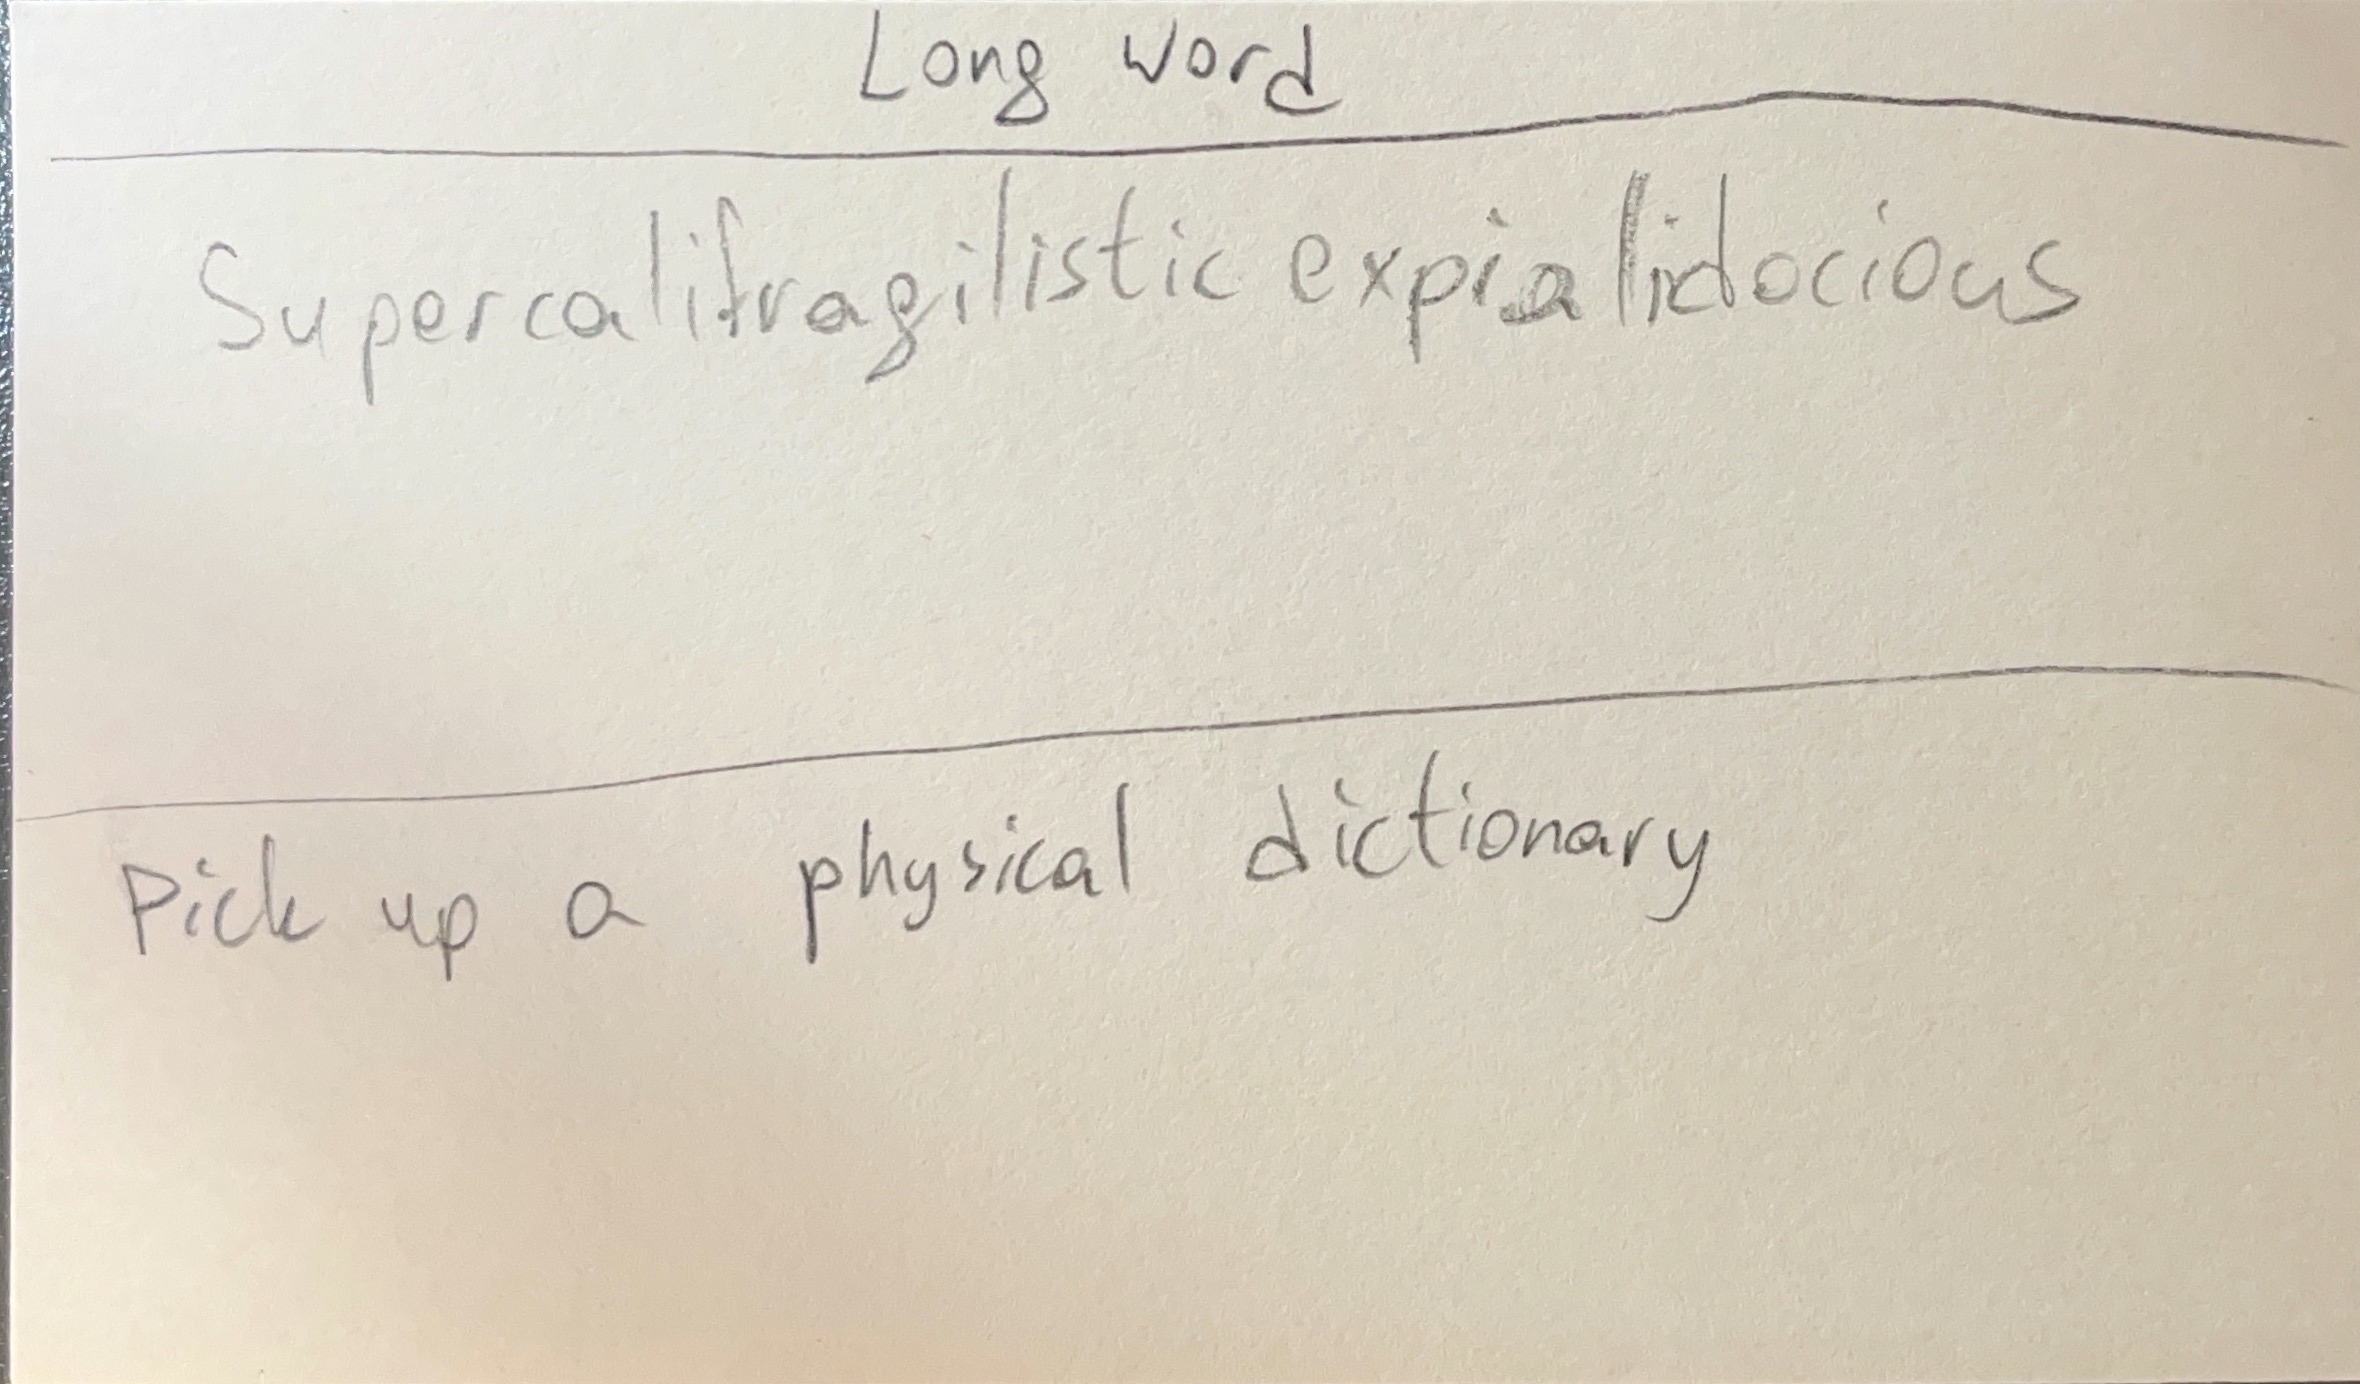 Long word
Supercalifragilistic expialidocious
Pick up a physical dictionary